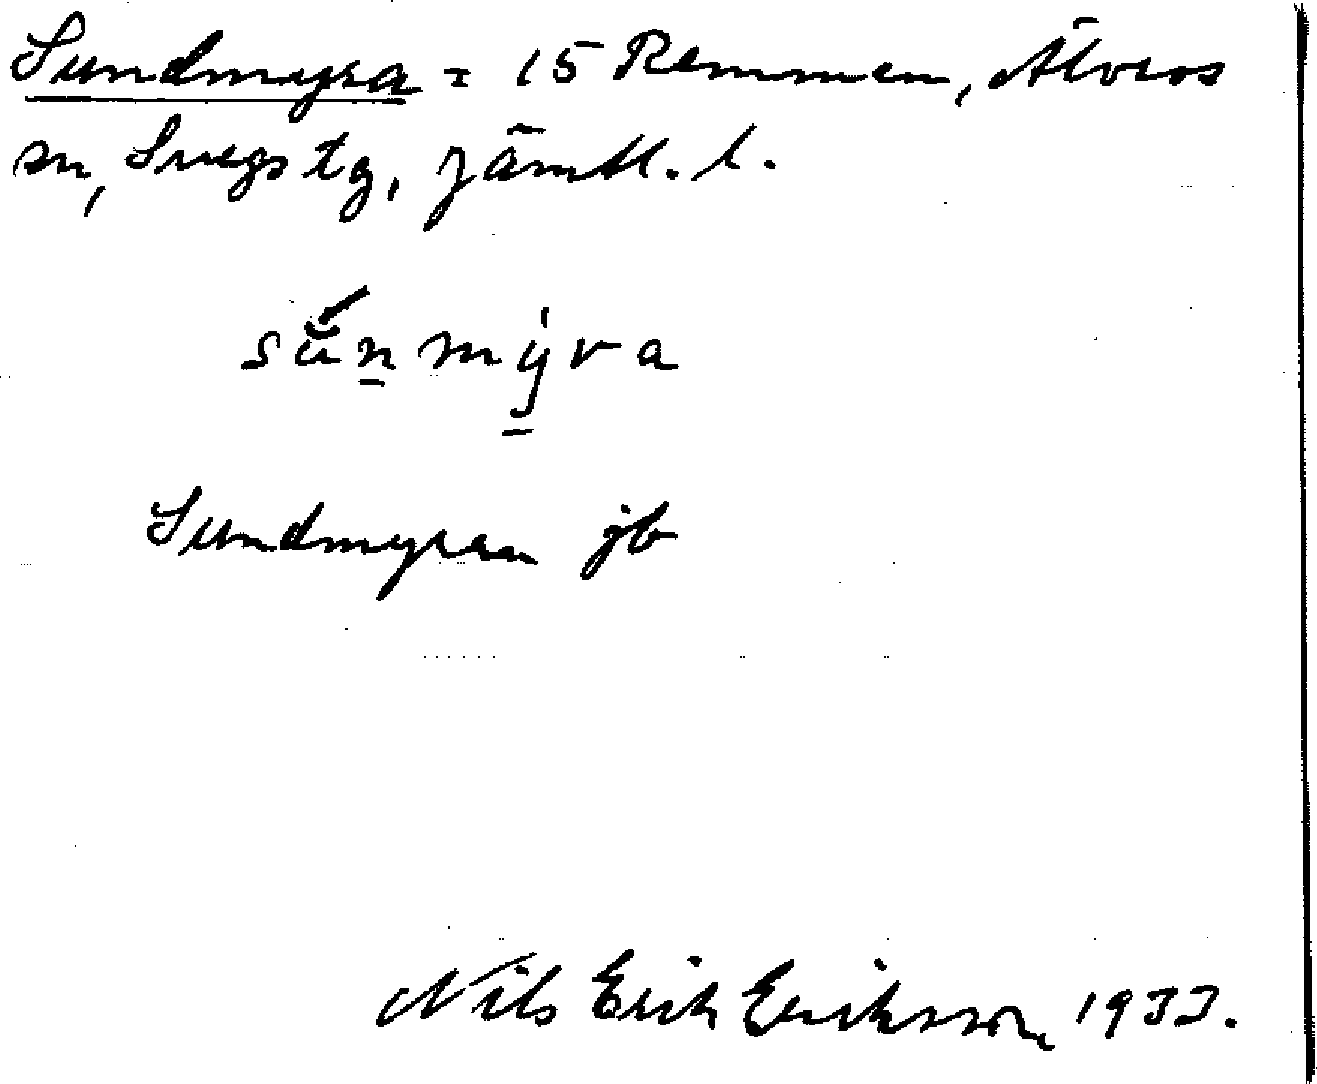 Sundmyra = 15 Remmen, Älvros
sn, Svegs tg, Jämtl. l.
sŭ́n̠mẏ̠ra
Sundmyran jb
Nils Erik Eriksson 1933.